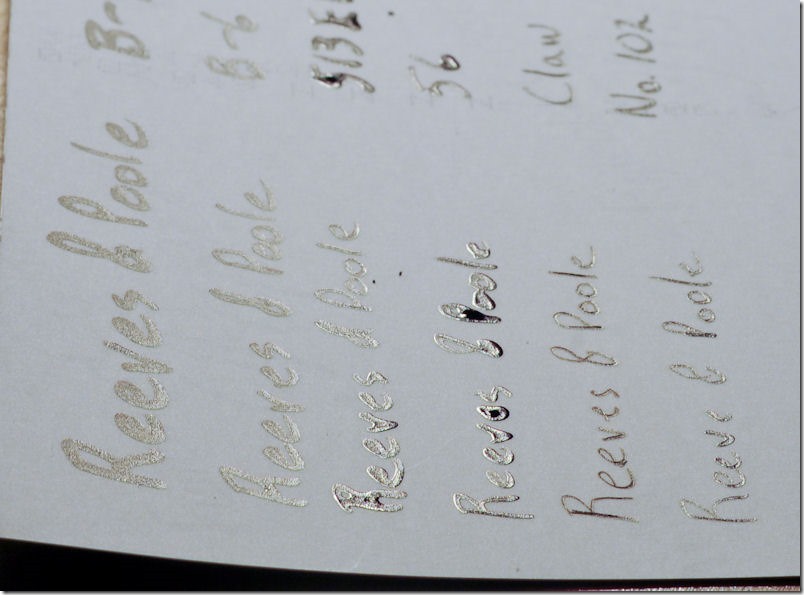 Reeves & Poole
Reeves & Poole B-6
Reeves & Poole
Reeves & Poole 56
Reeves & Poole Claw
Reeve & Poole No. 102